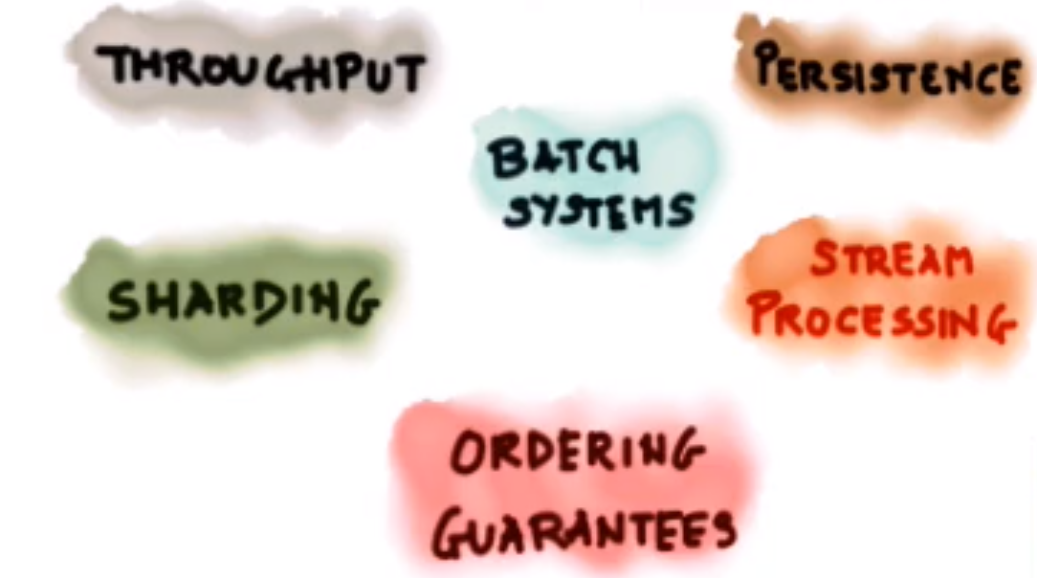 THROUGHPUT
PERSISTENCE
BATCH
SYSTEMS
SHARDING
STREAM
PROCESSING
ORDERING
GUARANTEES